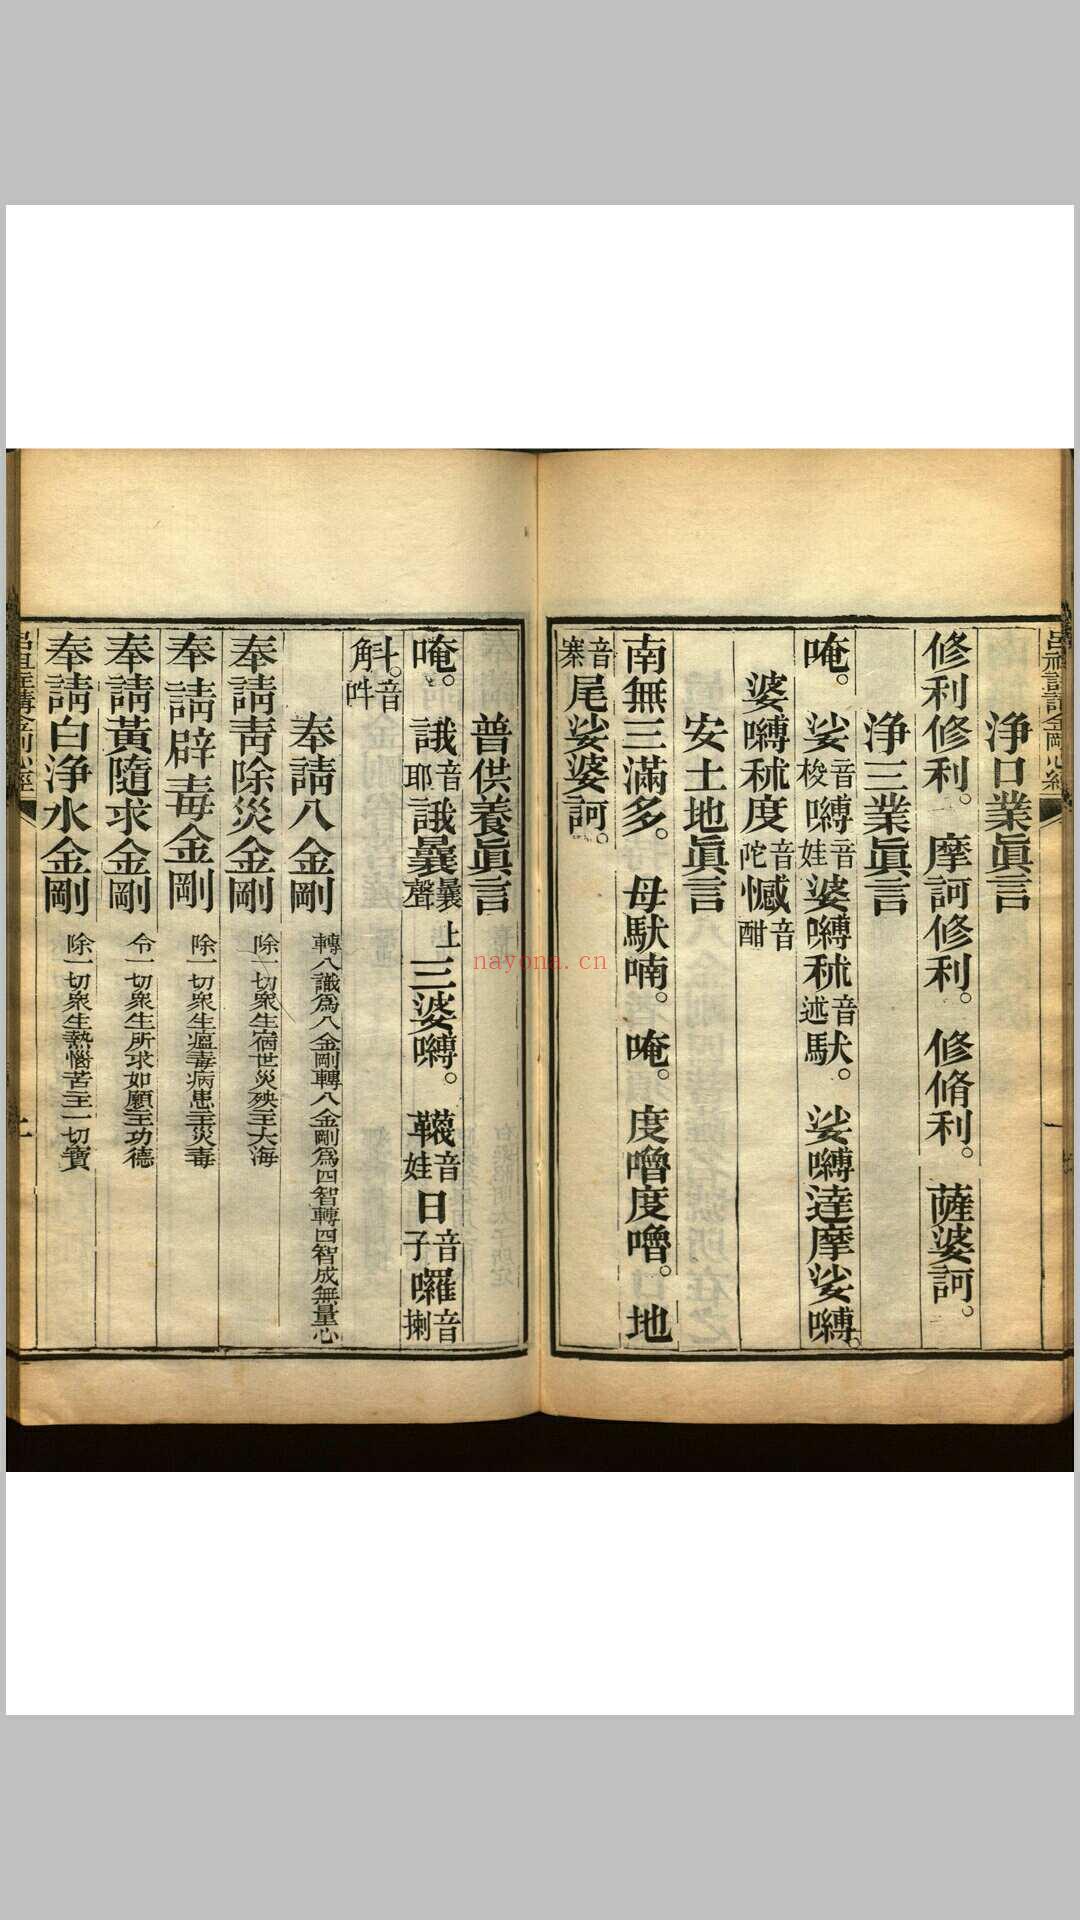 浄口業眞言
修利修利。摩訶修利。修脩利。薩婆訶。
浄三業眞言
唵。娑音梭嚩音娃婆嚩秫音述馱。娑嚩達摩娑嚩。
婆嚩秫度音陀憾音酣
安土地眞言
南無三滿多。母馱喃。唵。度嚕度嚕。地
音寨尾娑婆訶。
普供養眞言
唵。誐音耶誐曩曩上聲三婆嚩。韈音娃日音子囉音揦
斗。音角吽
奉請八金剛 轉八識爲八金剛轉八金剛爲四智轉四智成無量心
奉請靑除災金剛 除一切衆生宿世災殃主大海
奉請辟毒金剛 除一切衆生瘟毒病患主災毒
奉請黃隨求金剛 令一切衆生所求如願主功德
奉請白浄水金剛 除一切衆生熱惱苦主一切寶
nayona.cn